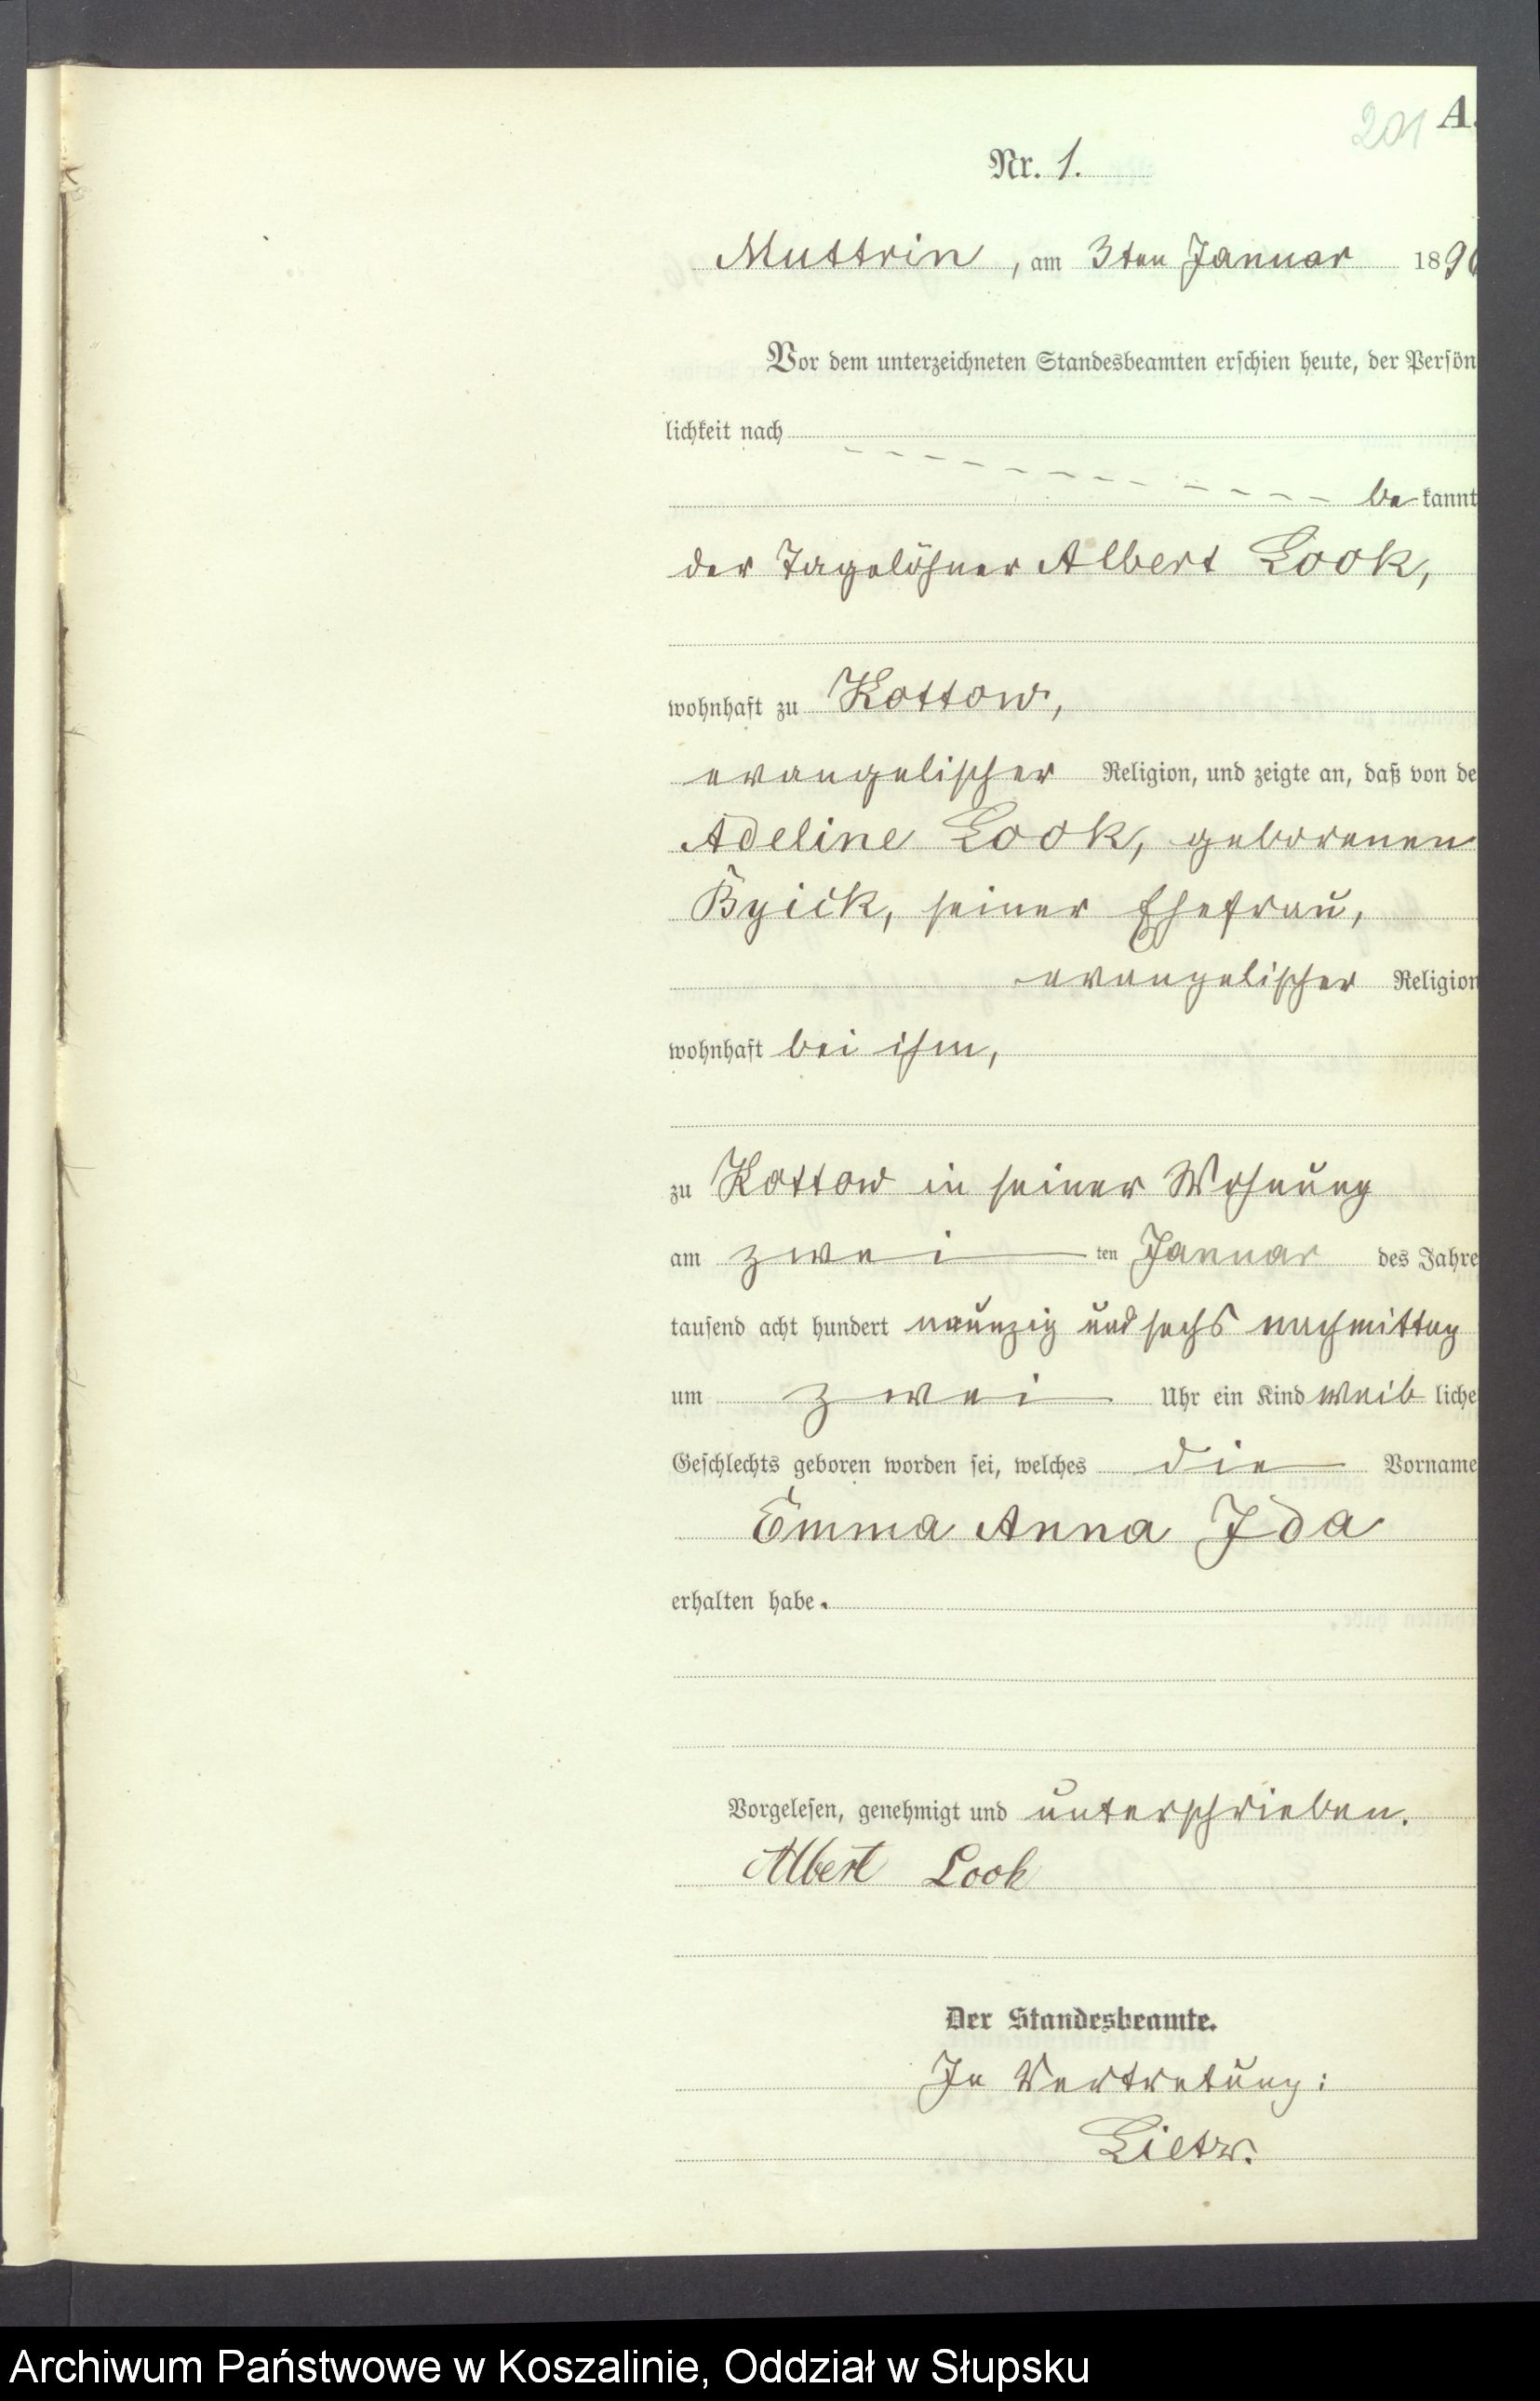 201 A.
Nr. 1.
Muttrin, am 3ten Januar 1896
Vor dem unterzeichneten Standesbeamten erschien heute, der Persön
lichkeit nach
be kannt
der Tagelöhner Albert Look,
wohnhaft zu Kottow,
evangelischer Religion, und zeigte an, daß von de
Adeline Look, geborenen
Byick, seiner Ehefrau,
evangelischer Religion
wohnhaft bei ihm,
zu Kottow in seiner Wohnung
am zwei ten Januar des Jahre
tausend acht hundert neunzig und sechs nachmittag
um zwei Uhr ein Kind weib liche
Geschlechts geboren worden sei, welches die Vorname
Emma Anna Ida
erhalten habe.
Vorgelesen, genehmigt und unterschrieben.
Albert Look
Der Standesbeamte.
In Vertretung:
Lietz.
Archiwum Państwowe w Koszalinie, Oddział w Słupsku